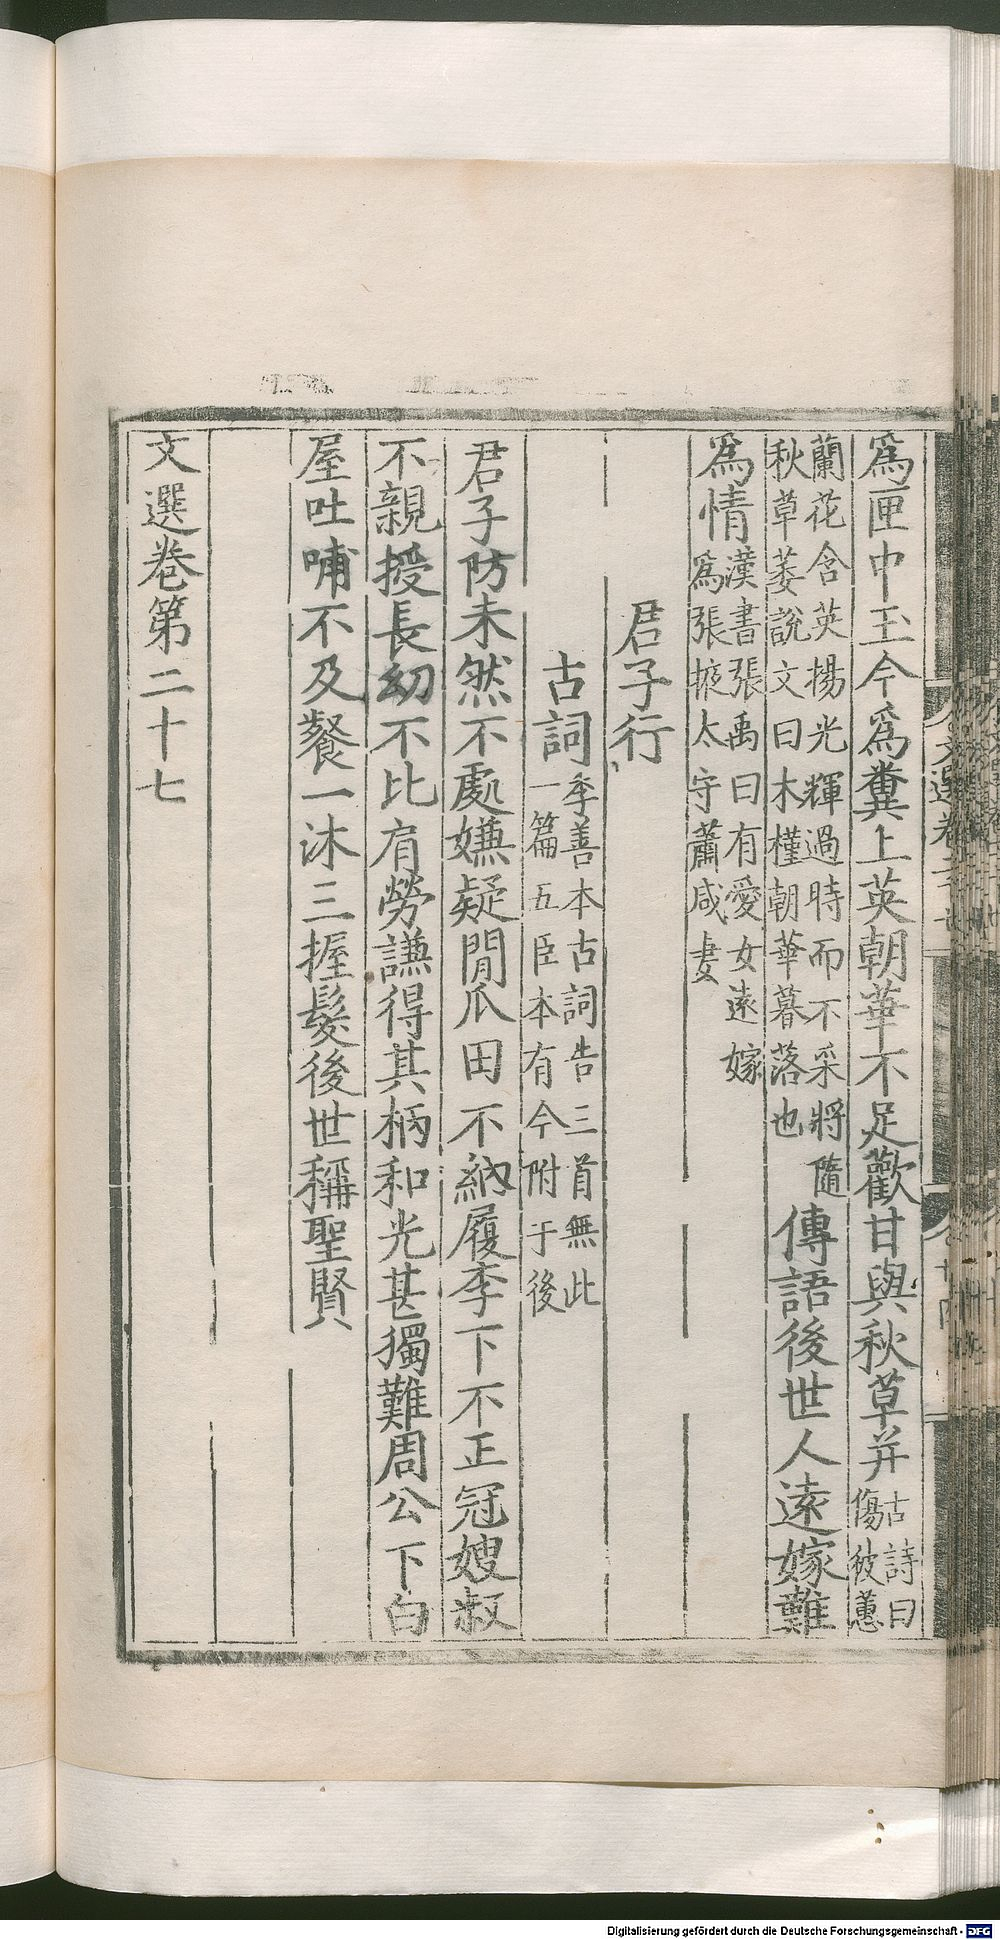 爲匣中玉今爲糞上英朝華不足歡甘與秋草并古詩曰傷彼蕙
蘭花含英揚光輝過時而不采將隨秋草萎說文曰木槿朝華暮落也傳語後世人遠嫁難
爲情漢書張禹曰有愛女遠嫁爲張掖太守蕭咸妻
君子行
古詞李善本古詞吿三首無此一篇五臣本有今附于後
君子防未然不處嫌疑閒瓜田不納履李下不正冠嫂叔
不親授長幼不比肩勞謙得其柄和光甚獨難周公下白
屋吐哺不及餐一沐三握髮後世稱聖賢
文選卷第二十七
Digitalisierung gefördert durch die Deutsche Forschungsgemeinschaft - DFG